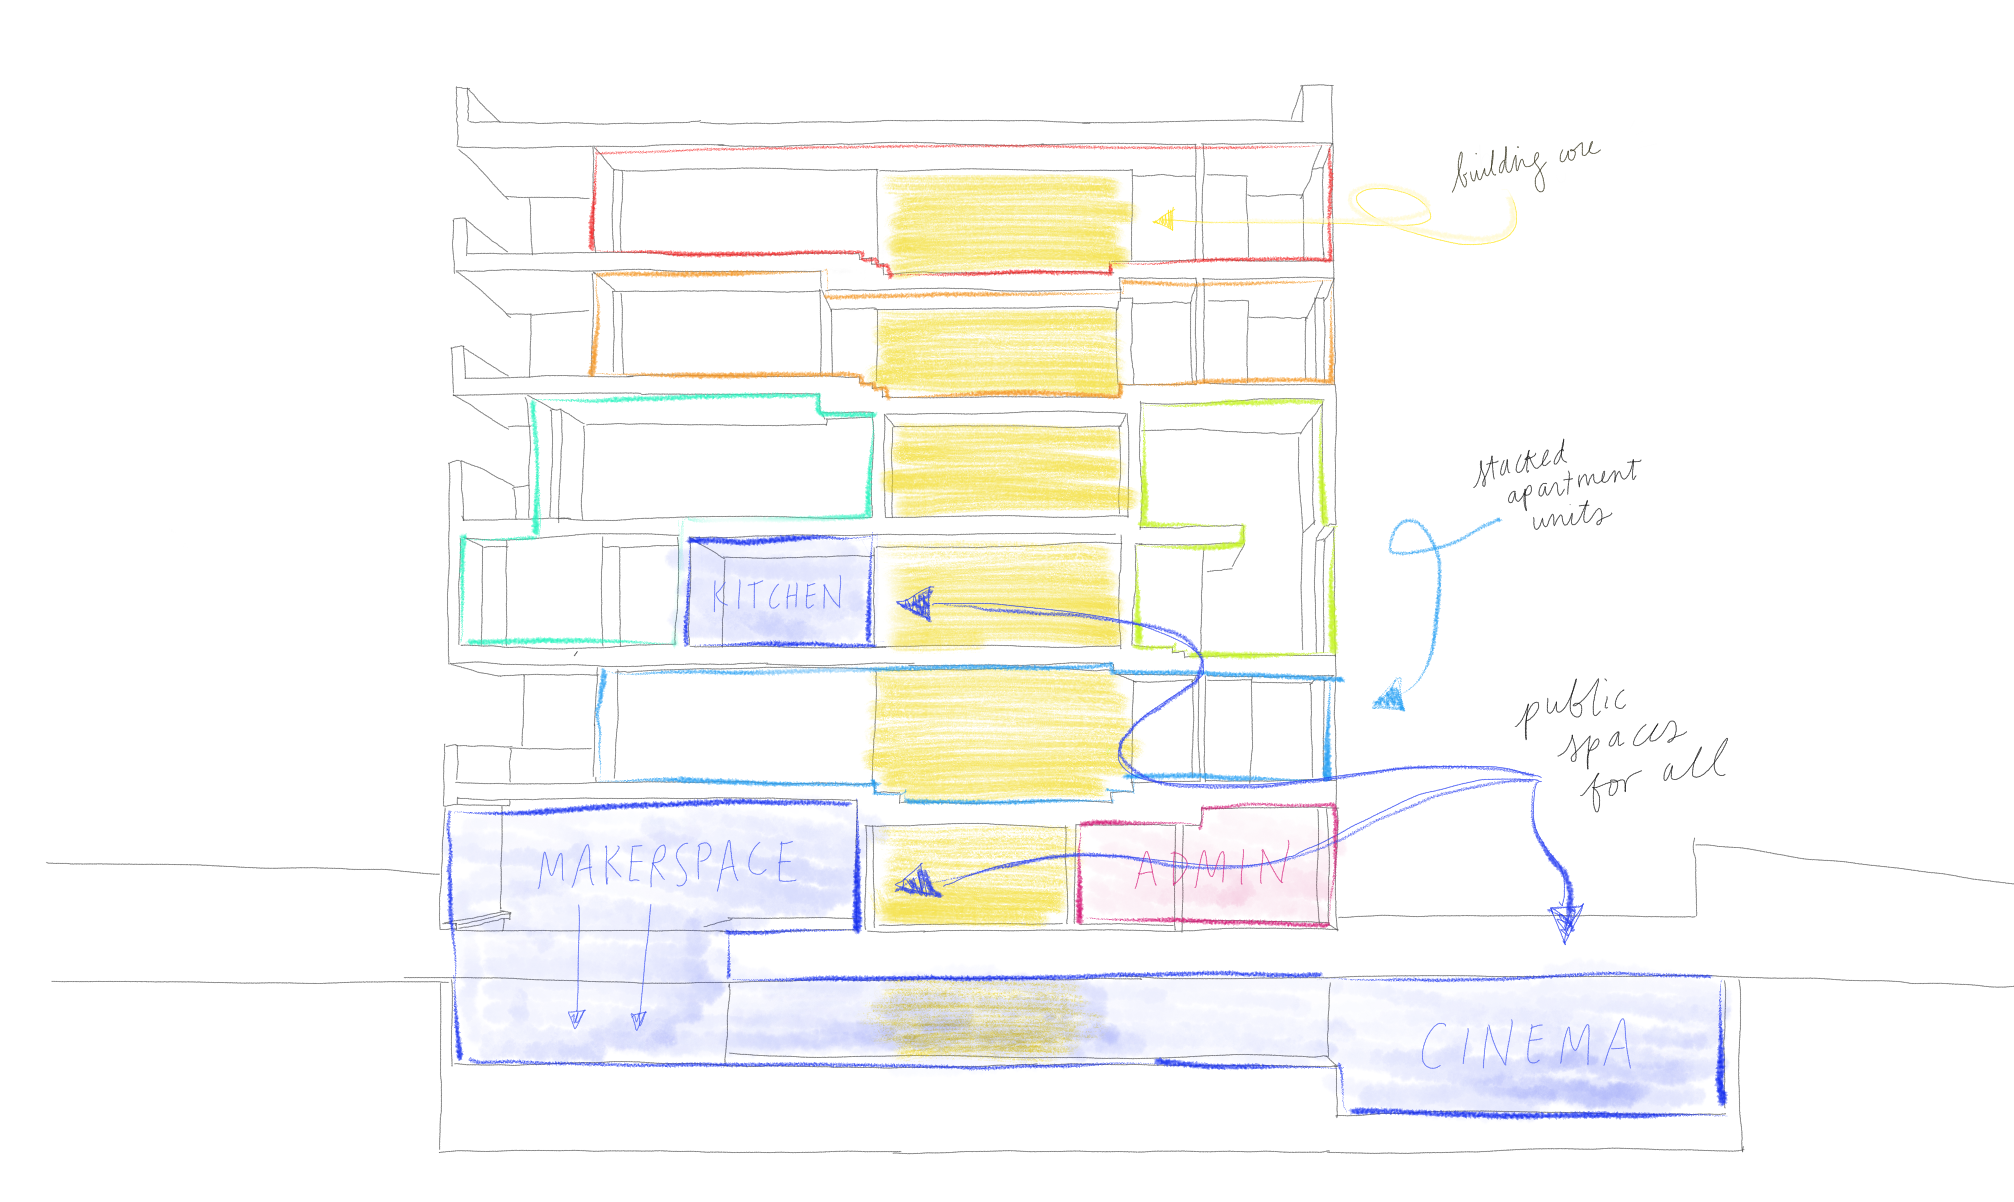 building core
stacked
apartment
units
KITCHEN
public
spaces
for all
MAKERSPACE
ADMIN
CINEMA